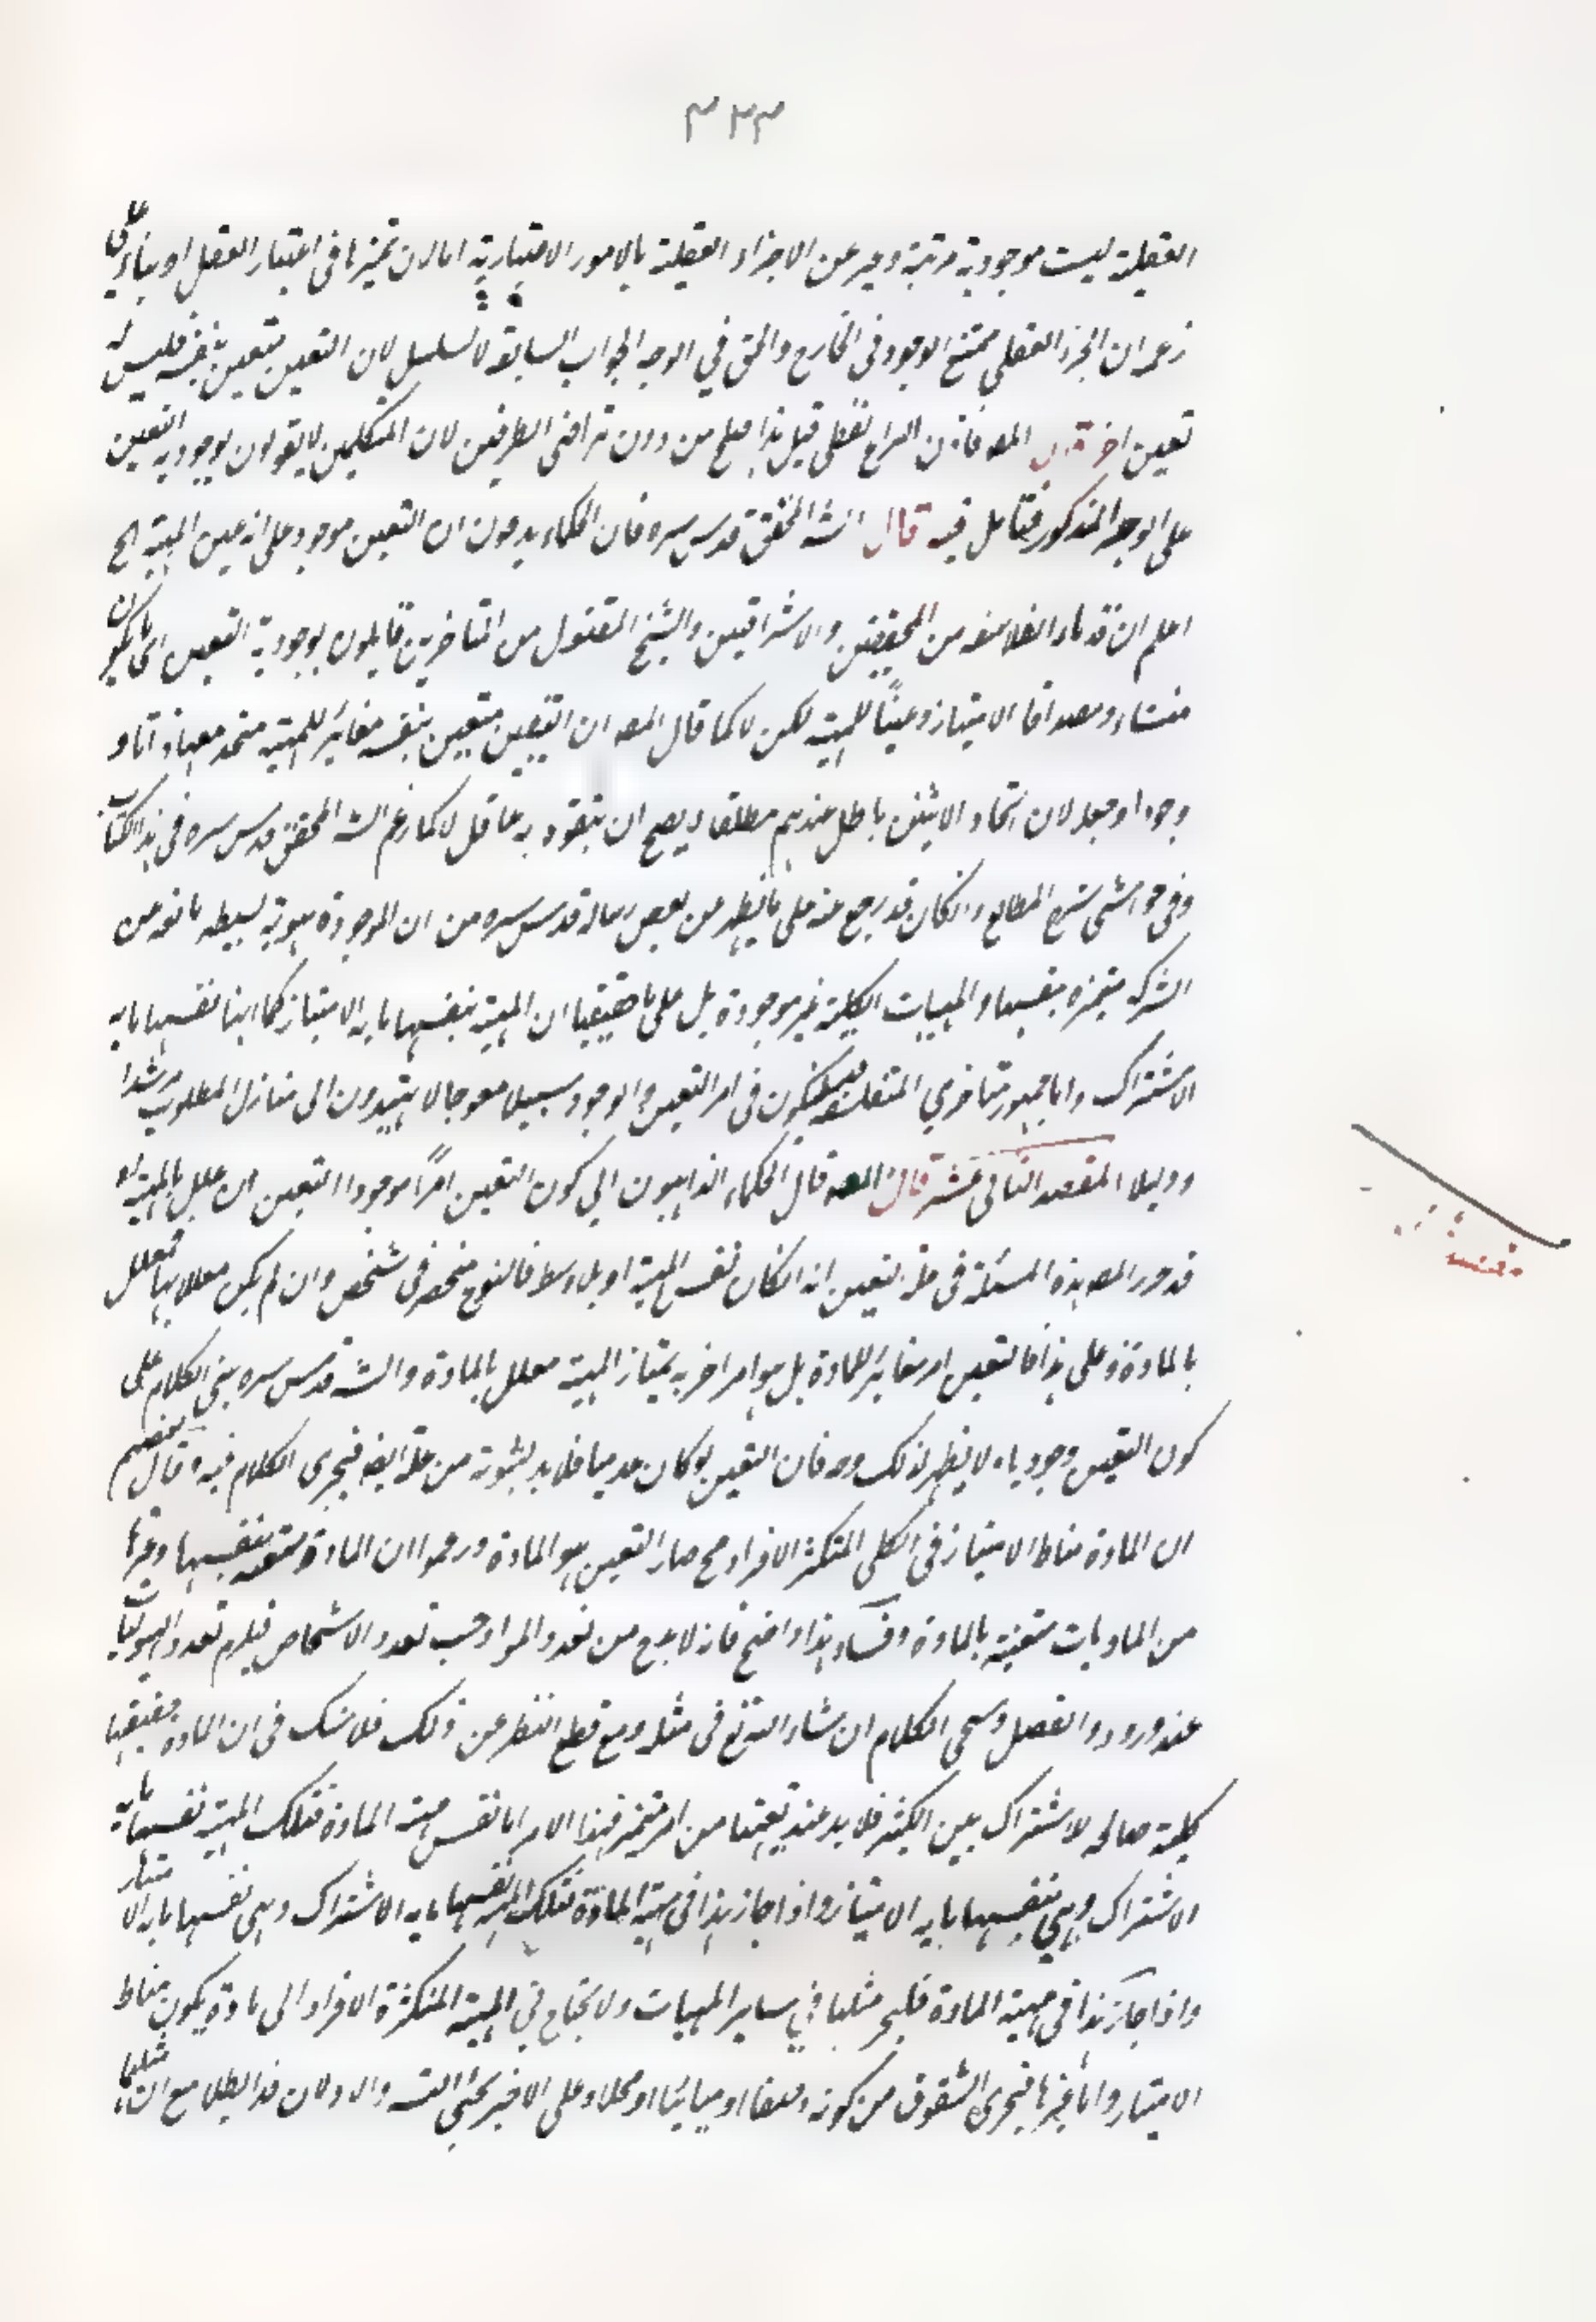 ٣٢٣
العقلية ليست موجودية مرتبة وعبر عن الاجزاء العقلية بالامور الاعتبارية اما لان تميزها فى اعتبار العقل او بناء على
زعم ان الجزء العقلي ممتنع الوجود فى الخارج والحق في الوجه الجواب السابق لا تسلسل لان التعين متعين بنفسه فليس له
تعين اخر قال المصه فاذن النزاع لفظى قيل هذا صلح من دون تراضى الطرفين لان المتكلمين لا يقولون بوجودية التعين
على الوجه المذكور فتامل فيه قال الشه المحقق قدس سره فان الحكماء يدعون ان التعين موجود على انه عين المهية الخ
اعلم ان قدماء الفلاسفه من المحققين والاشراقيين والشيخ المقتول من المتاخرين قايلون بوجودية التعين اى ما يكون
منشاء ومصداقا الامتياز وعينًا للمهية لكن لا كما قال المصه ان التعين متعين بنفسه مغاير للمهية متحد معها ذاتا و
وجودا وجعلا لان اتحاد الاثنين باطل عندهم مطلقا لا يصح ان يتفوه به عاقل لا كما زعم الشه المحقق قدس سره فى هذا الكتاب
وفى حواشى شرح المطالع وانكان قد رجع عنه على ما يظهر من بعض رسائله قدس سره من ان الموجودة هوية بسيطه مانعه من
الشركه متميزه بنفسها والمهيات الكلية غير موجودة بل على ما حققنا ان المهية بنفسها مابه الامتياز كما انها نفسها مابه
الاشتراك واما جمهور متاخري المتفلسفه فيسلكون فى امر التعين والوجود سبيلا معوجا لا يهتدون الى منازل المطلوب مرشدا
ودليلا المقصد الثانى عشر قال المصه قال الحكماء الذاهبون الى كون التعين امرًا موجودا التعين ان علل بالمهية اه
قد حرر المصه هذه المسئلة فى علة التعين انه انكان نفس المهية او بلا وسط فالنوع منحصر فى شخص وان لم يكن معللا بها فمعلل
بالمادة وعلى هذا فالتعين امر مغاير للمادة بل هو امر اخر به يمتاز المهية معلل بالمادة والشه قدس سره بنى الكلام على
كون التعين وجوديا ولا يظهر لذلك وجه فان التعين لو كان عدميا فلا بد لثبوته من علة ايضا فيجرى الكلام فيه وقال بعضهم
ان المادة مناط الامتياز فى الكلى المتكثر الافراد فح صار التعين هو المادة وزعموا ان المادة متعينه بنفسها وغيرها
من الماديات متعينة بالمادة وفساد هذا واضح فانه لا بد ح من تعدد المواد حسب تعدد الاشخاص فيلزم تعدد الهيوليات
عند ورود الفصل وسيجى الكلام ان شاء الله تع فى مثله ومع قطع النظر عن ذلك فلا شك فى ان المادة حقيقتها
كلية صالحه لاشتراك بين الكثير فلا بد عند تعينها من امر متميز فهذا الامر اما نفس مهية المادة فتلك المهية نفسها مابه
الاشتراك وهي بنفسها مابه الامتياز واذا جاز هذا فى مهية المادة فتلك المهية نفسها مابه الاشتراك وهى نفسها مابه الامتياز
واذا جاز هذا فى مهية المادة فليجز مثلها في ساير المهيات ولا يحتاج في المهية المتكثرة الافراد الى مادة يكون مناط
الامتياز واما غيرها فيجرى الشقوق من كونه وصفا او مباينا او محلا وعلى الاخير يجئ التسه والاولان قد ابطلا مع ان مثلها